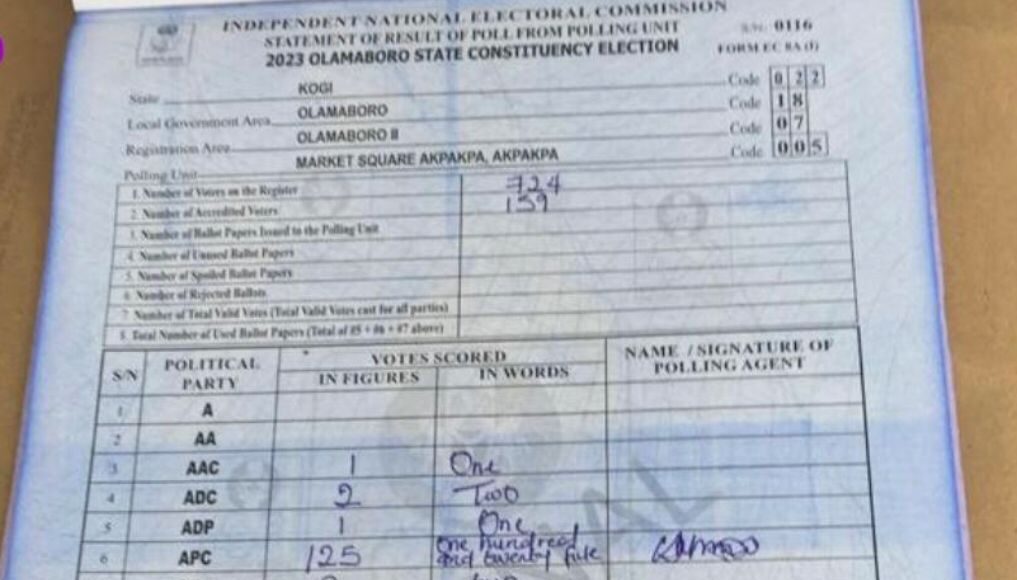 INDEPENDENT NATIONAL ELECTORAL COMMISSION
STATEMENT OF RESULT OF POLL FROM POLLING UNIT
S/N. 0116
2023 OLAMABORO STATE CONSTITUENCY ELECTION
FORM EC 8A (I)
State KOGI Code 0 2 2
Local Government Area OLAMABORO Code 1 8
Registration Area OLAMABORO II Code 0 7
Polling Unit MARKET SQUARE AKPAKPA, AKPAKPA Code 0 0 5
1. Number of Voters on the Register 724
2. Number of Accredited Voters 159
3. Number of Ballot Papers Issued to the Polling Unit
4. Number of Unused Ballot Papers
5. Number of Spoiled Ballot Papers
6. Number of Rejected Ballots
7. Number of Total Valid Votes (Total Valid Votes cast for all parties)
8. Total Number of Used Ballot Papers (Total of #5 + #6 + #7 above)
S/N POLITICAL PARTY VOTES SCORED NAME / SIGNATURE OF POLLING AGENT
IN FIGURES IN WORDS
1 A
2 AA
3 AAC 1 One
4 ADC 2 Two
5 ADP 1 One
6 APC 125 One hundred and twenty five